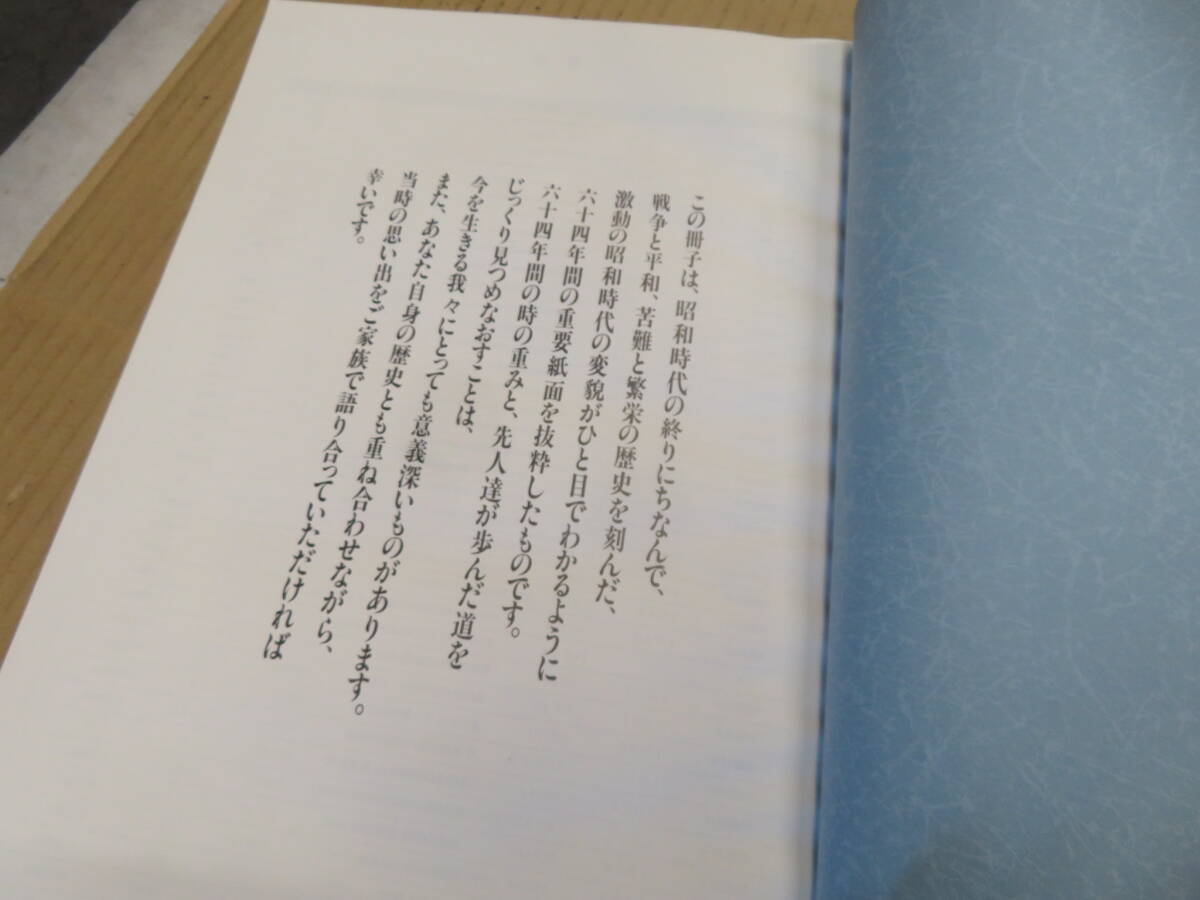 この冊子は、昭和時代の終りにちなんで、
戦争と平和、苦難と繁栄の歴史を刻んだ、
激動の昭和時代の変貌がひと目でわかるように
六十四年間の重要紙面を抜粋したものです。
六十四年間の時の重みと、先人達が歩んだ道を
じっくり見つめなおすことは、
今を生きる我々にとっても意義深いものがあります。
また、あなた自身の歴史とも重ね合わせながら、
当時の思い出をご家族で語り合っていただければ
幸いです。